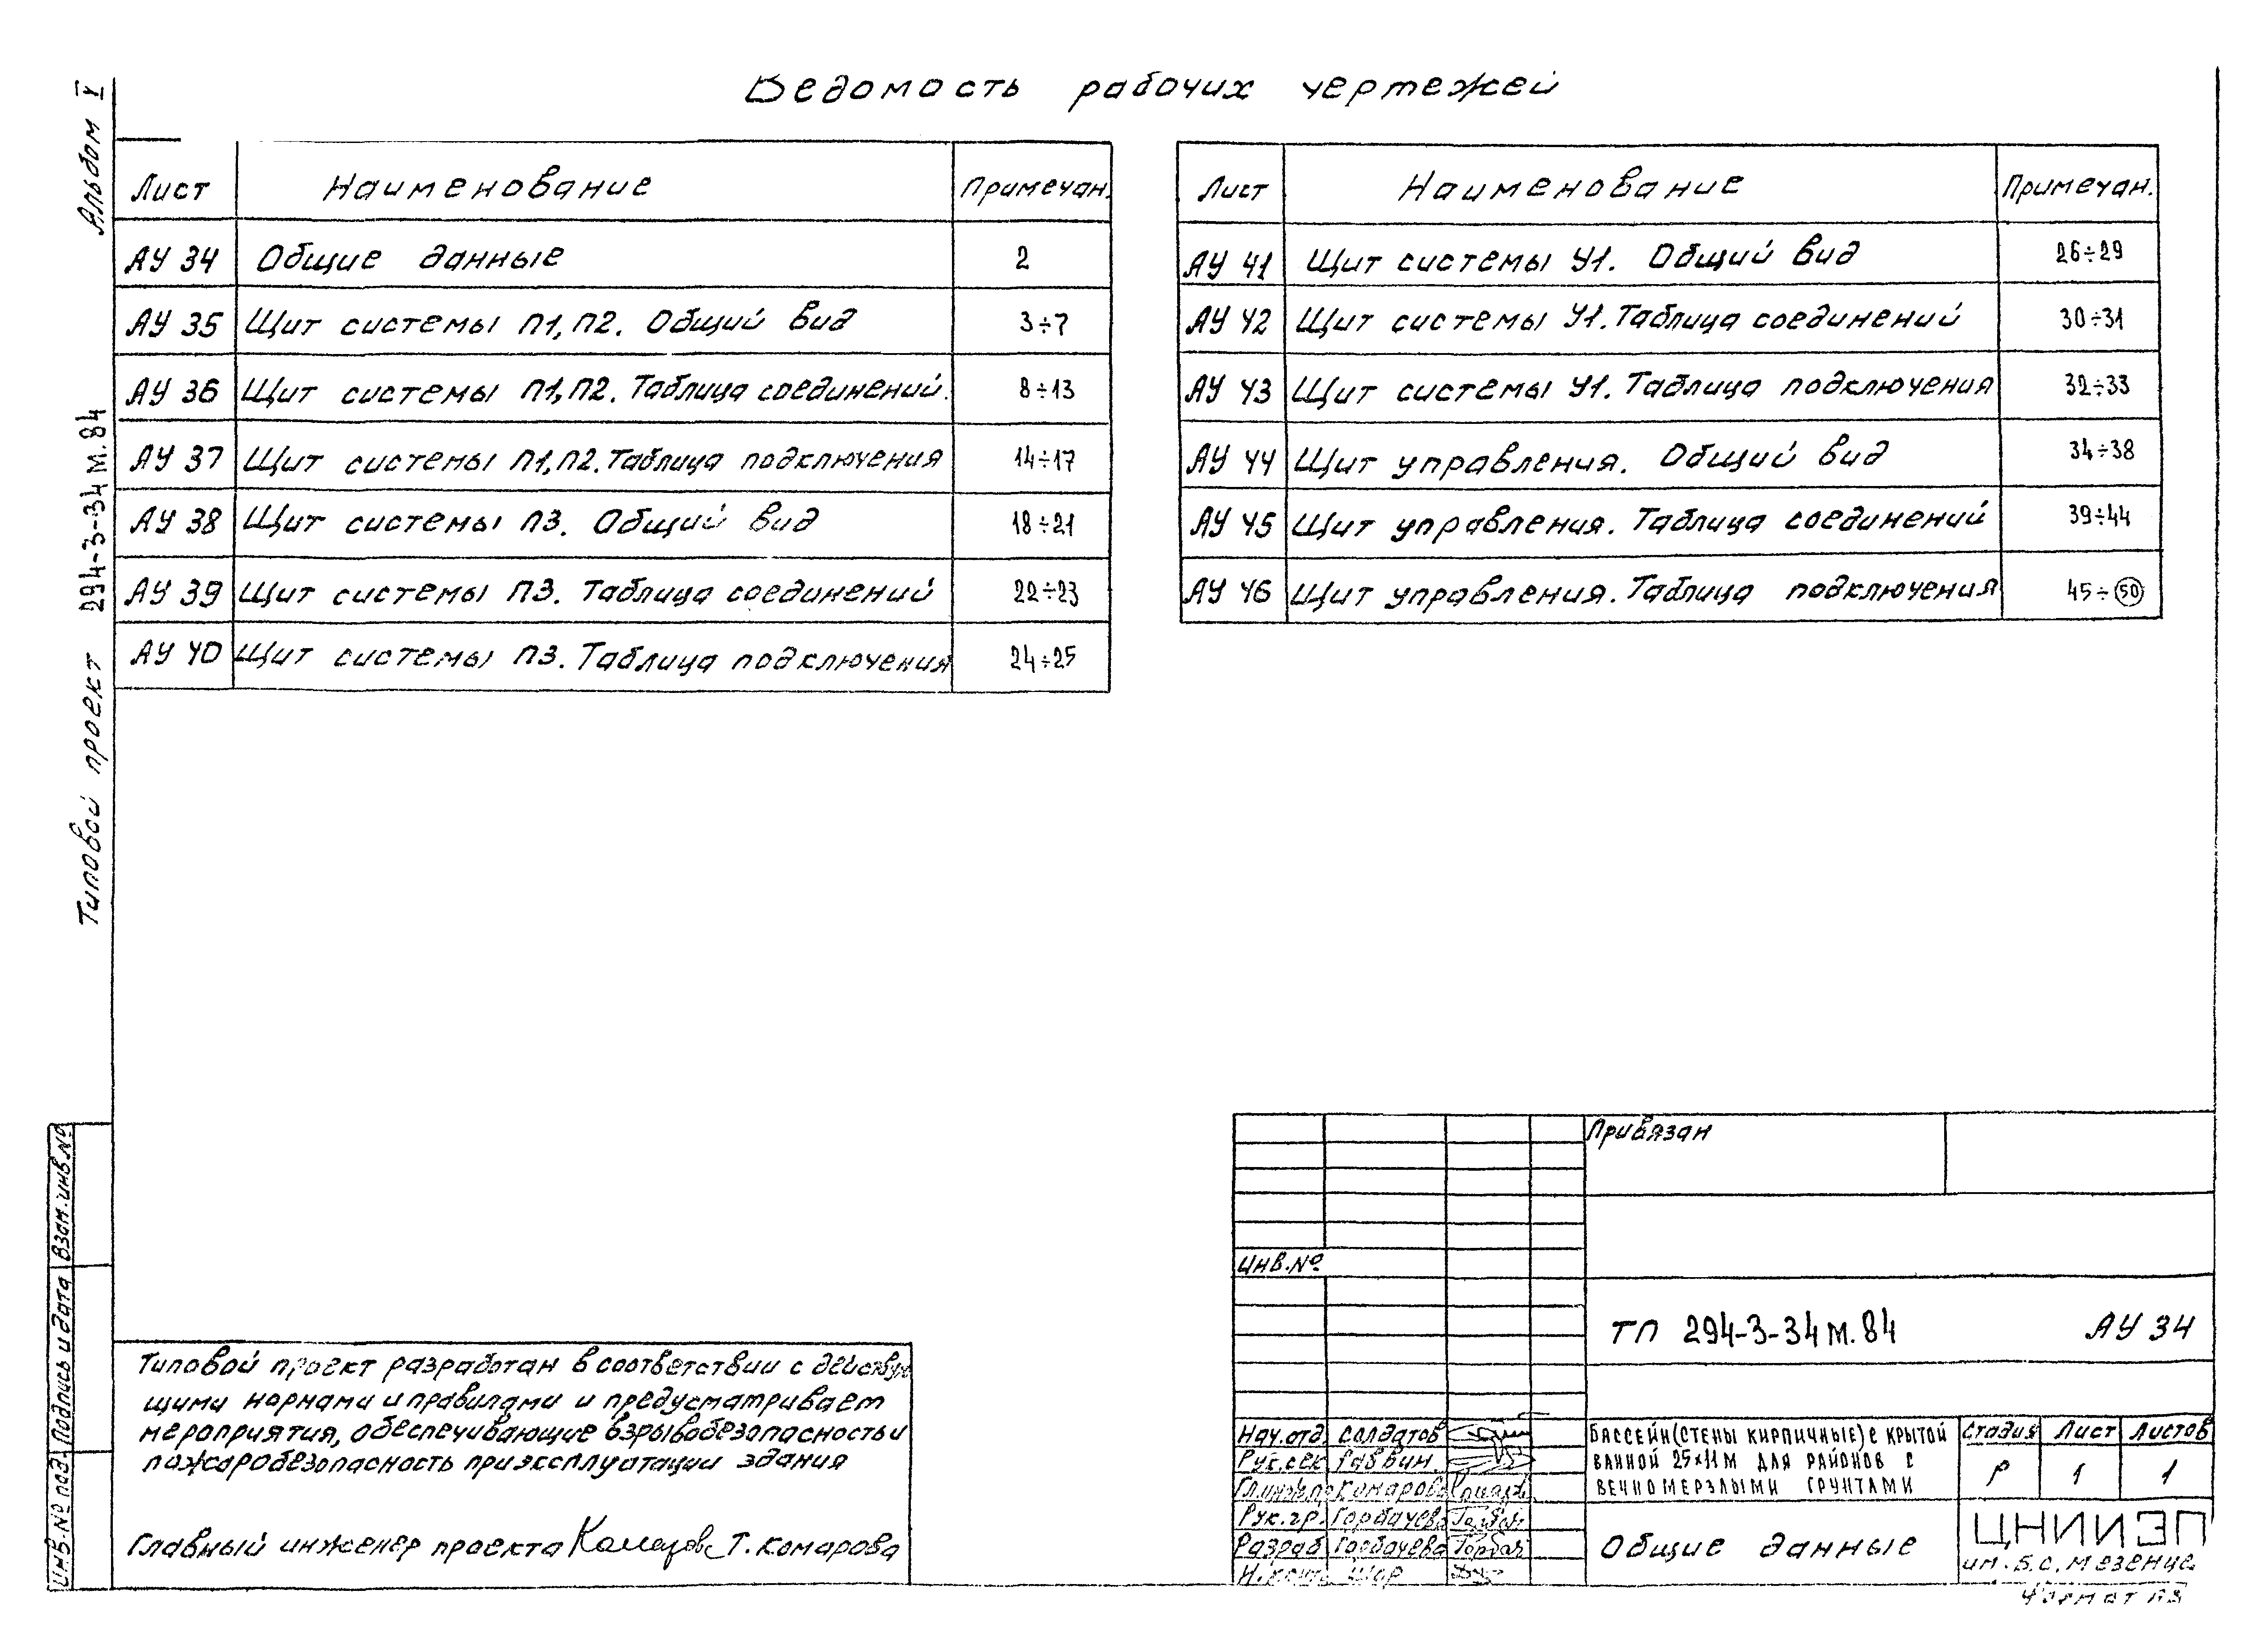 Ведомость рабочих чертежей
Альбом V
Типовой проект 294-3-34м.84
Лист Наименование Примечан.
АУ 34 Общие данные 2
АУ 35 Щит системы П1, П2. Общий вид 3÷7
АУ 36 Щит системы П1, П2. Таблица соединений. 8÷13
АУ 37 Щит системы П1, П2. Таблица подключения 14÷17
АУ 38 Щит системы П3. Общий вид 18÷21
АУ 39 Щит системы П3. Таблица соединений 22÷23
АУ 40 Щит системы П3. Таблица подключения 24÷25
Лист Наименование Примечан.
АУ 41 Щит системы У1. Общий вид 26÷29
АУ 42 Щит системы У1. Таблица соединений 30÷31
АУ 43 Щит системы У1. Таблица подключения 32÷33
АУ 44 Щит управления. Общий вид 34÷38
АУ 45 Щит управления. Таблица соединений 39÷44
АУ 46 Щит управления. Таблица подключения 45÷50
Инв.№ подл. Подпись и дата Взам.инв.№
Типовой проект разработан в соответствии с действую
щими нормами и правилами и предусматривает
мероприятия, обеспечивающие взрывобезопасность и
пожаробезопасность при эксплуатации здания
Главный инженер проекта Т. Комарова
Привязан
Инв.№
ТП 294-3-34м.84 АУ 34
Нач.отд. Солдатов
Рук.сек Раввин.
Гл.инж.пр Комарова
Рук.гр. Горбачева
Разраб Горбачева
Н.конт. Шор
Бассейн (стены кирпичные) с крытой
ванной 25×11м для районов с
вечномерзлыми грунтами
Стадия Лист Листов
Р 1 1
Общие данные
ЦНИИЭП
им. Б.С. Мезенцева
Формат А3